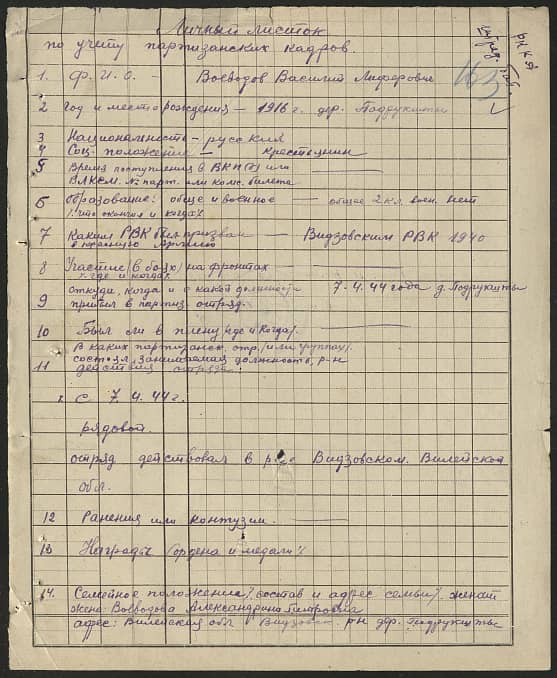 Личный листок
по учету партизанских кадров.
163
1. Ф.И.О. – Воеводов Василий
2 Год и место рождения – 1916 г. дер.
3 Национальность – русский
4 Соц. положение – крестьянин
5 Время поступления в ВКП(б) или
ВЛКСМ. № парт. или комс. билета
6 Образование: общее и военное – общее 2 кл. воен. нет
(что окончил и когда)
7 Каким РВК был призван – Видзовским РВК 1940
в красную Армию
8 Участие (в боях) на фронтах
где и когда
откуда, когда и с какой должности 7.4.44 года д.
9 прибыл в партиз. отряд.
10 Был ли в плену (где и когда).
В каких партизанск. отр. (или группах).
состоял, занимаемая должность, р-н
11 действия отряда:
с 7.4.44 г.
рядовой.
отряд действовал в Видзовском. Вилейской
обл.
12 Ранения или контузии.
13 Награды (ордена и медали)
14. Семейное положение, состав и адрес семьи). женат
жена: Воеводова Александрина Петровна
адрес: Вилейская обл. Видзовск. р-н дер.